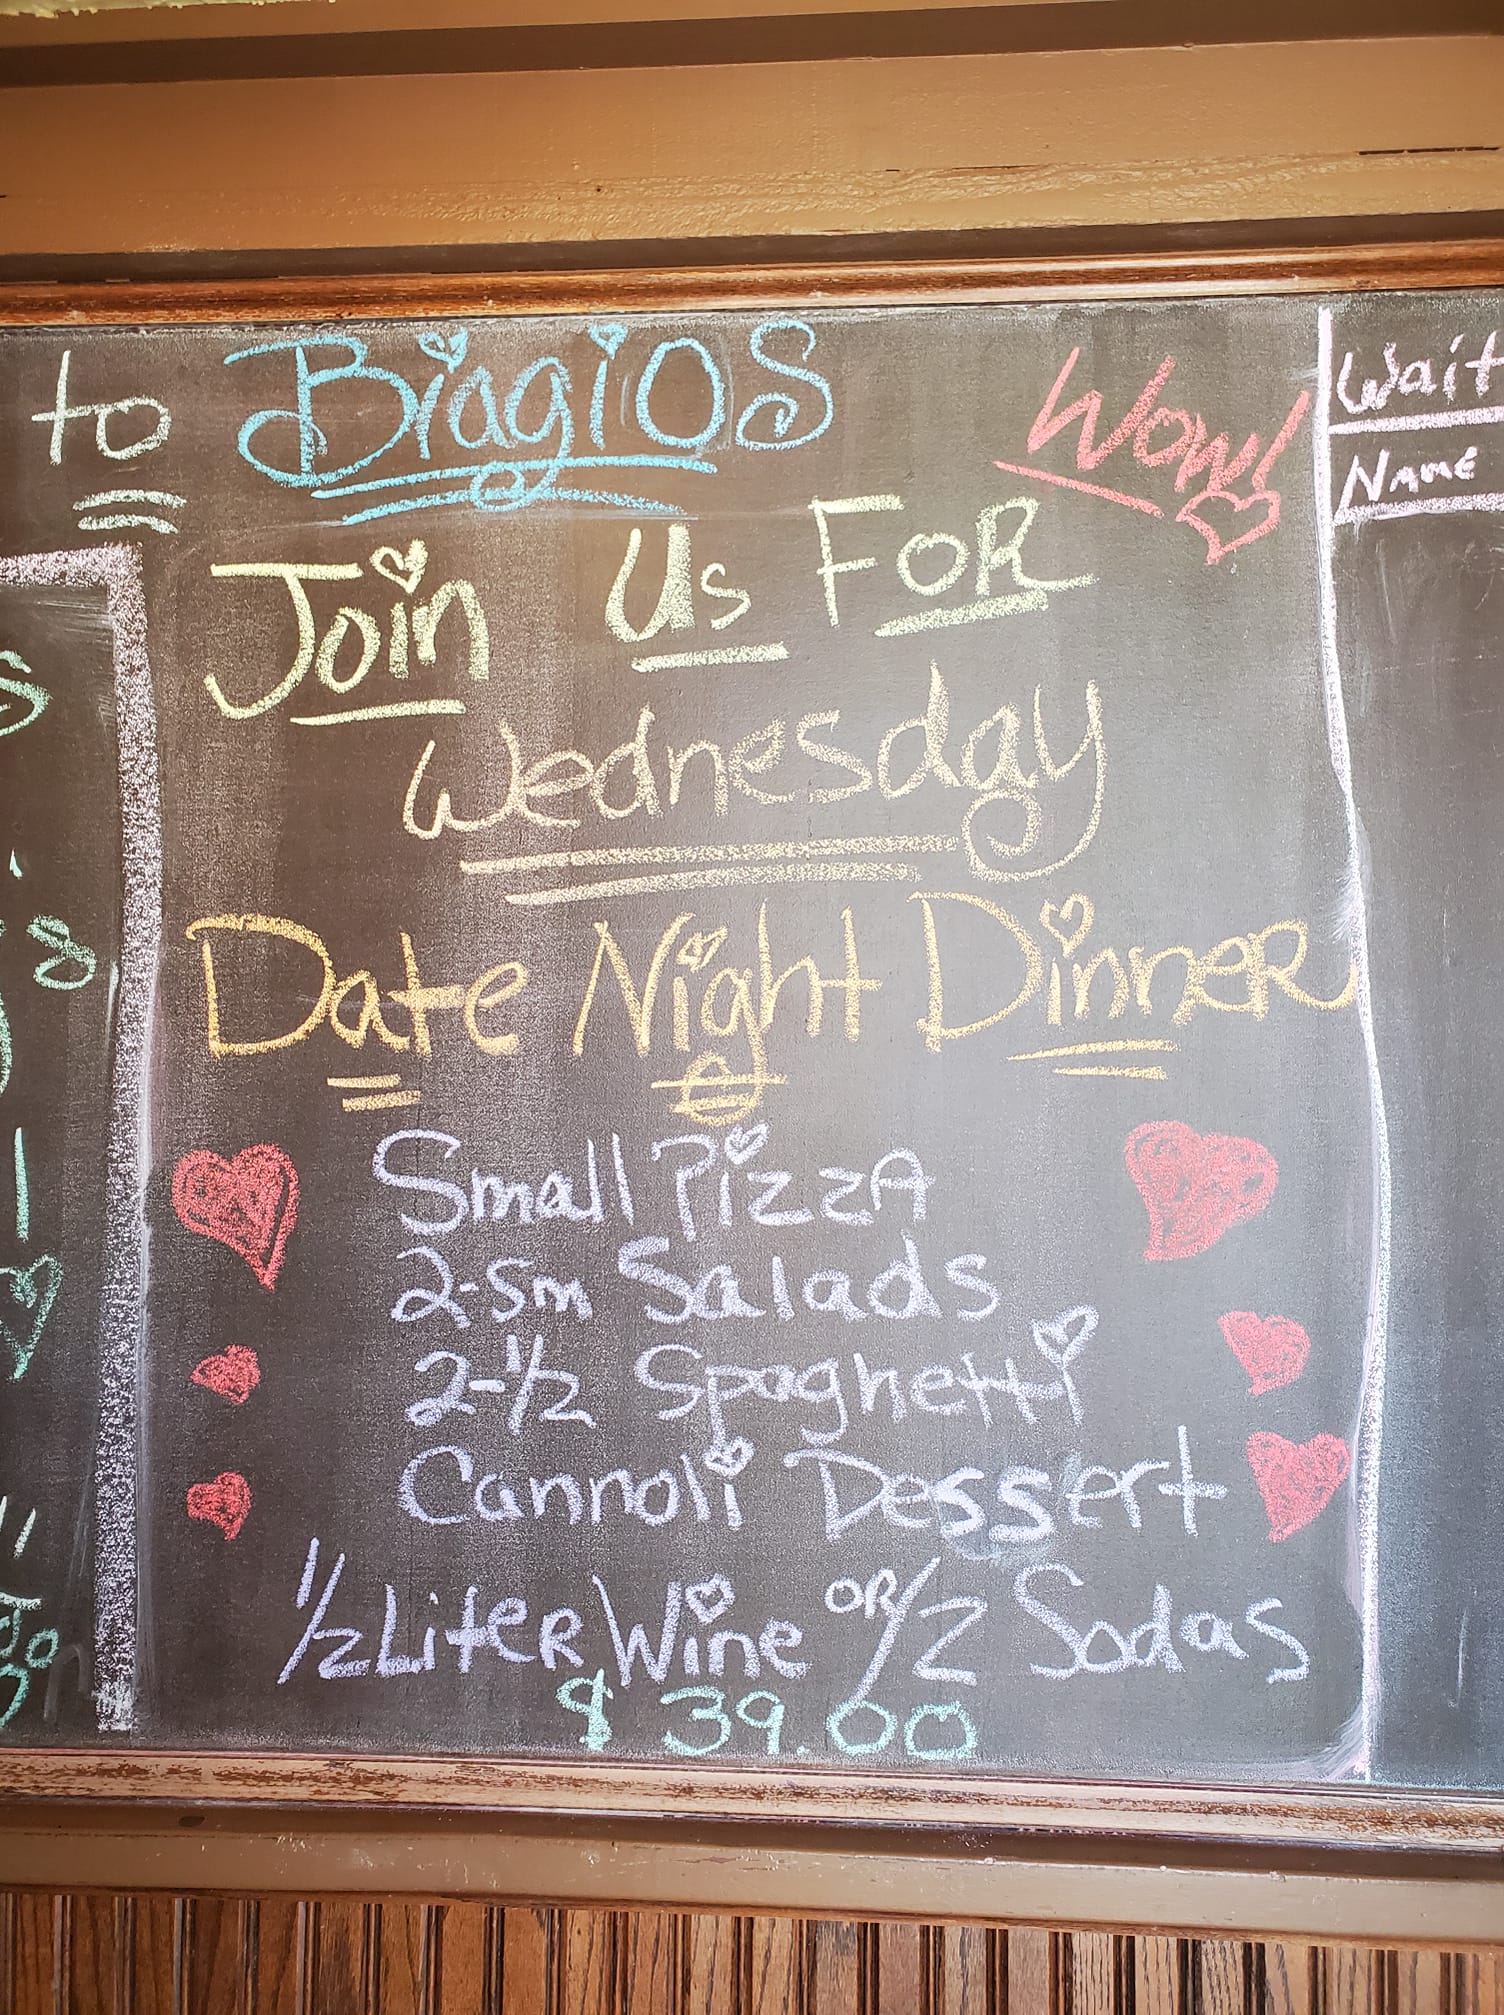 to BiagiOS
Wow!
Join Us FOR
Wednesday
Date Night DinneR
Small PizzA
2-Sm Salads
2-1/2 Spaghetti
Cannoli Dessert
1/2 LiteR Wine OR/2 Sodas
$39.00
Wait
NAME